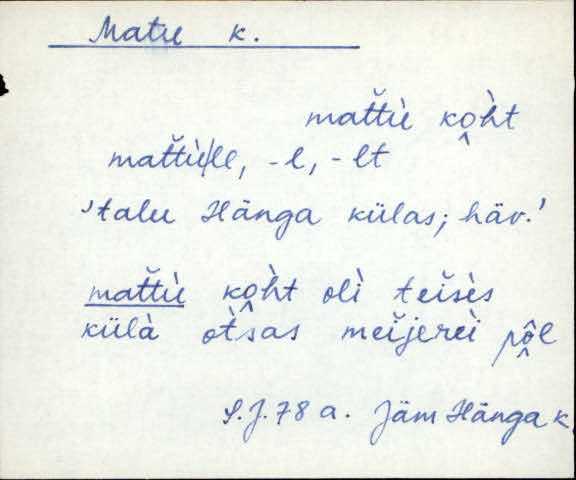 Matu k.
mat̆t̆ù ko̭h̀t
mat̆t̆ù/le, -l, -lt
'talu Hänga külas; häv.'
mat̆t̆ù ko̭h̀t olì teĭsès
külà ot̀sas meĭjereì pô̭l
S.J. 78 a. Jäm Hänga k